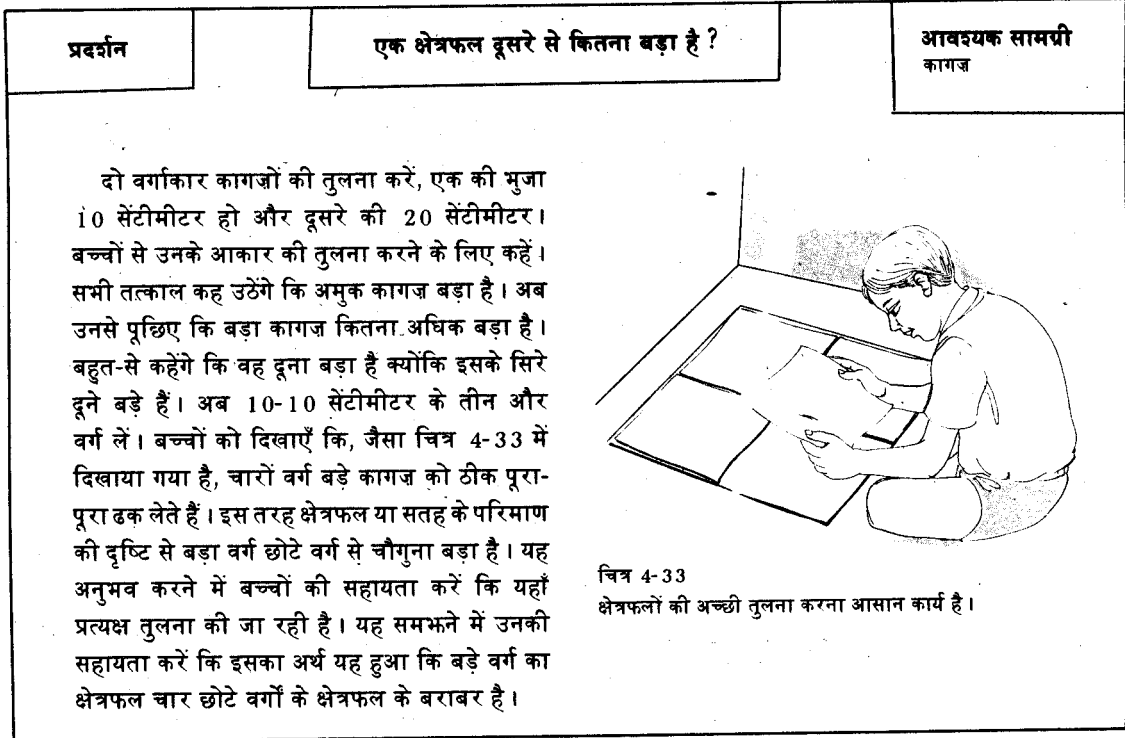 प्रदर्शन
एक क्षेत्रफल दूसरे से कितना बड़ा है ?
आवश्यक सामग्री
कागज़
दो वर्गाकार कागज़ों की तुलना करें, एक की भुजा
10 सेंटीमीटर हो और दूसरे की 20 सेंटीमीटर।
बच्चों से उनके आकार की तुलना करने के लिए कहें।
सभी तत्काल कह उठेंगे कि अमुक कागज़ बड़ा है। अब
उनसे पूछिए कि बड़ा कागज़ कितना अधिक बड़ा है।
बहुत-से कहेंगे कि वह दूना बड़ा है क्योंकि इसके सिरे
दूने बड़े हैं। अब 10-10 सेंटीमीटर के तीन और
वर्ग लें। बच्चों को दिखाएँ कि, जैसा चित्र 4-33 में
दिखाया गया है, चारों वर्ग बड़े कागज़ को ठीक पूरा-
पूरा ढक लेते हैं। इस तरह क्षेत्रफल या सतह के परिमाण
की दृष्टि से बड़ा वर्ग छोटे वर्ग से चौगुना बड़ा है। यह
अनुभव करने में बच्चों की सहायता करें कि यहाँ
प्रत्यक्ष तुलना की जा रही है। यह समझने में उनकी
सहायता करें कि इसका अर्थ यह हुआ कि बड़े वर्ग का
क्षेत्रफल चार छोटे वर्गों के क्षेत्रफल के बराबर है।
चित्र 4-33
क्षेत्रफलों की अच्छी तुलना करना आसान कार्य है।